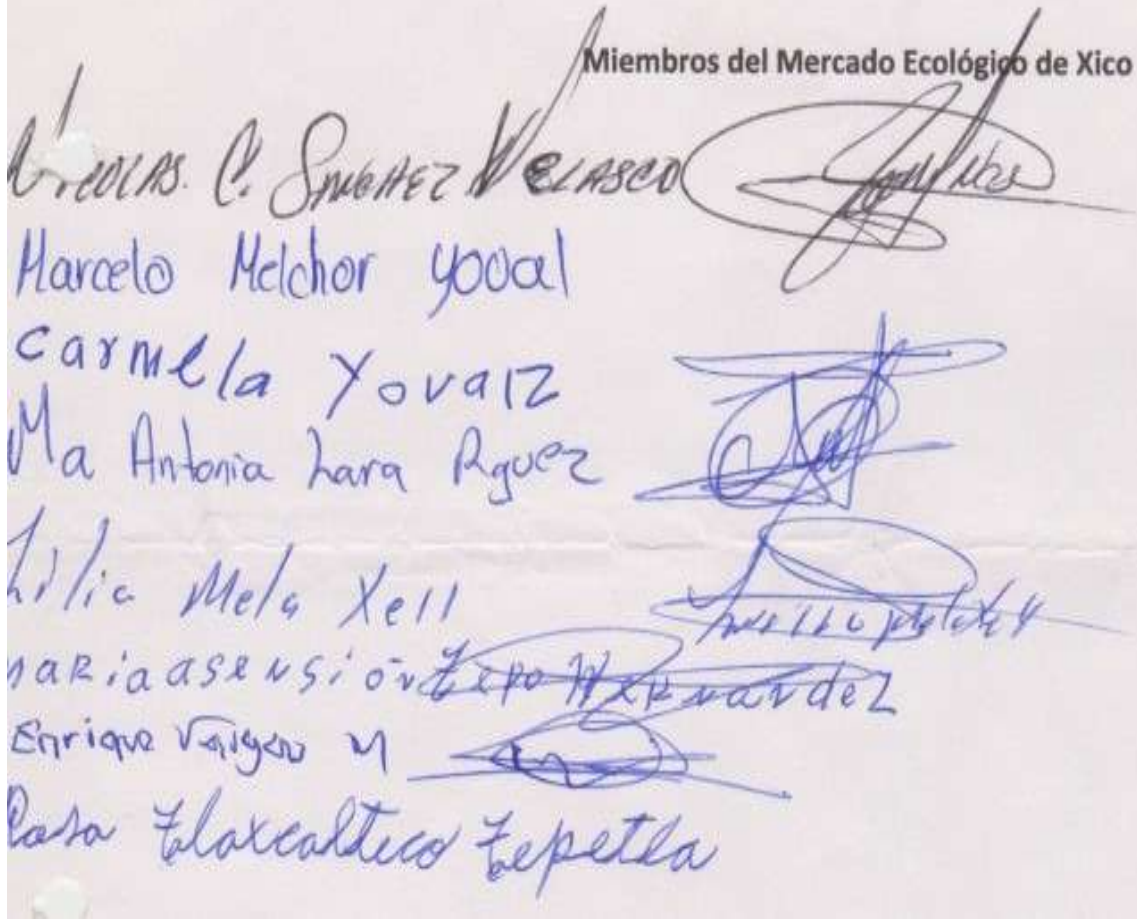 Miembros del Mercado Ecológico de Xico
Nicolas. C. Sanchez Velasco
Marcelo Melchor Yoval
Carmela Yovalz
Ma Antonia Lara Rguez
Lilia Mela Xell
maria asensión Tepo Hernandez
Enrique Vargas M
Rosa Tlaxcalteco Tepetla